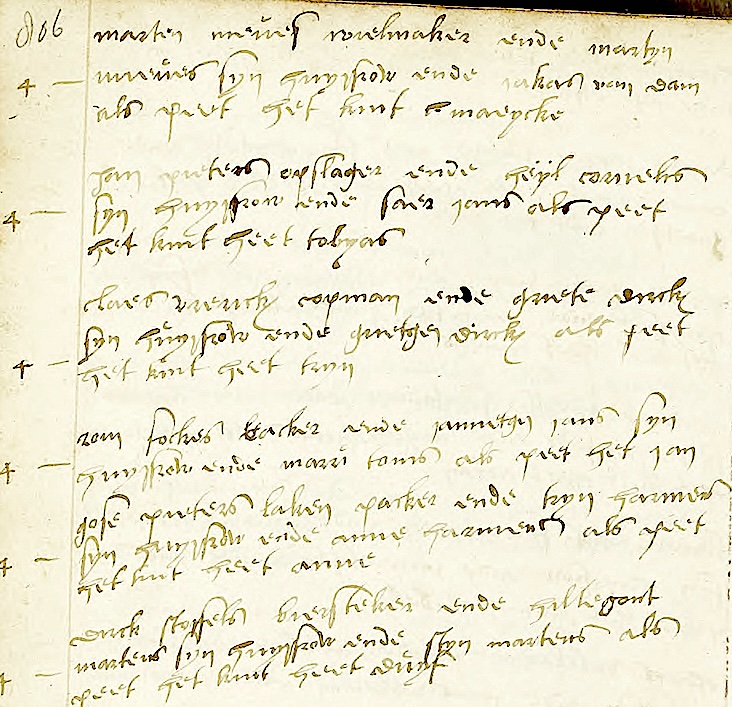 marten meües wielmaker ende martyn
4 meües syn huyisfrow ende jakas van dam
als peet het kint maeycke
jan pieters opslager ende heyl cornelis
4 syn huyisfrow ende saer jans als peet
het kint heet tobyas
claes vrerickz copman ende griete dirckz
syn hüyisfrow ende grietgen dirckz als peet
4 het kint heet tryn
rom fockes backer ende jannetgn jans syn
4 huyisfrow ende marri toms als peet het jan
gose pieters laken packer ende tryn harmens
4 syn huyisfrow ende anne harmens als peet
het kint heet anne
dirck stoffels biersteker ende hillegont
martens syn huyisfrow ende styn martens als
4 peet het kint heet düyf